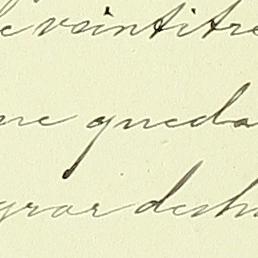 e veintitre
ne queda
grar desh